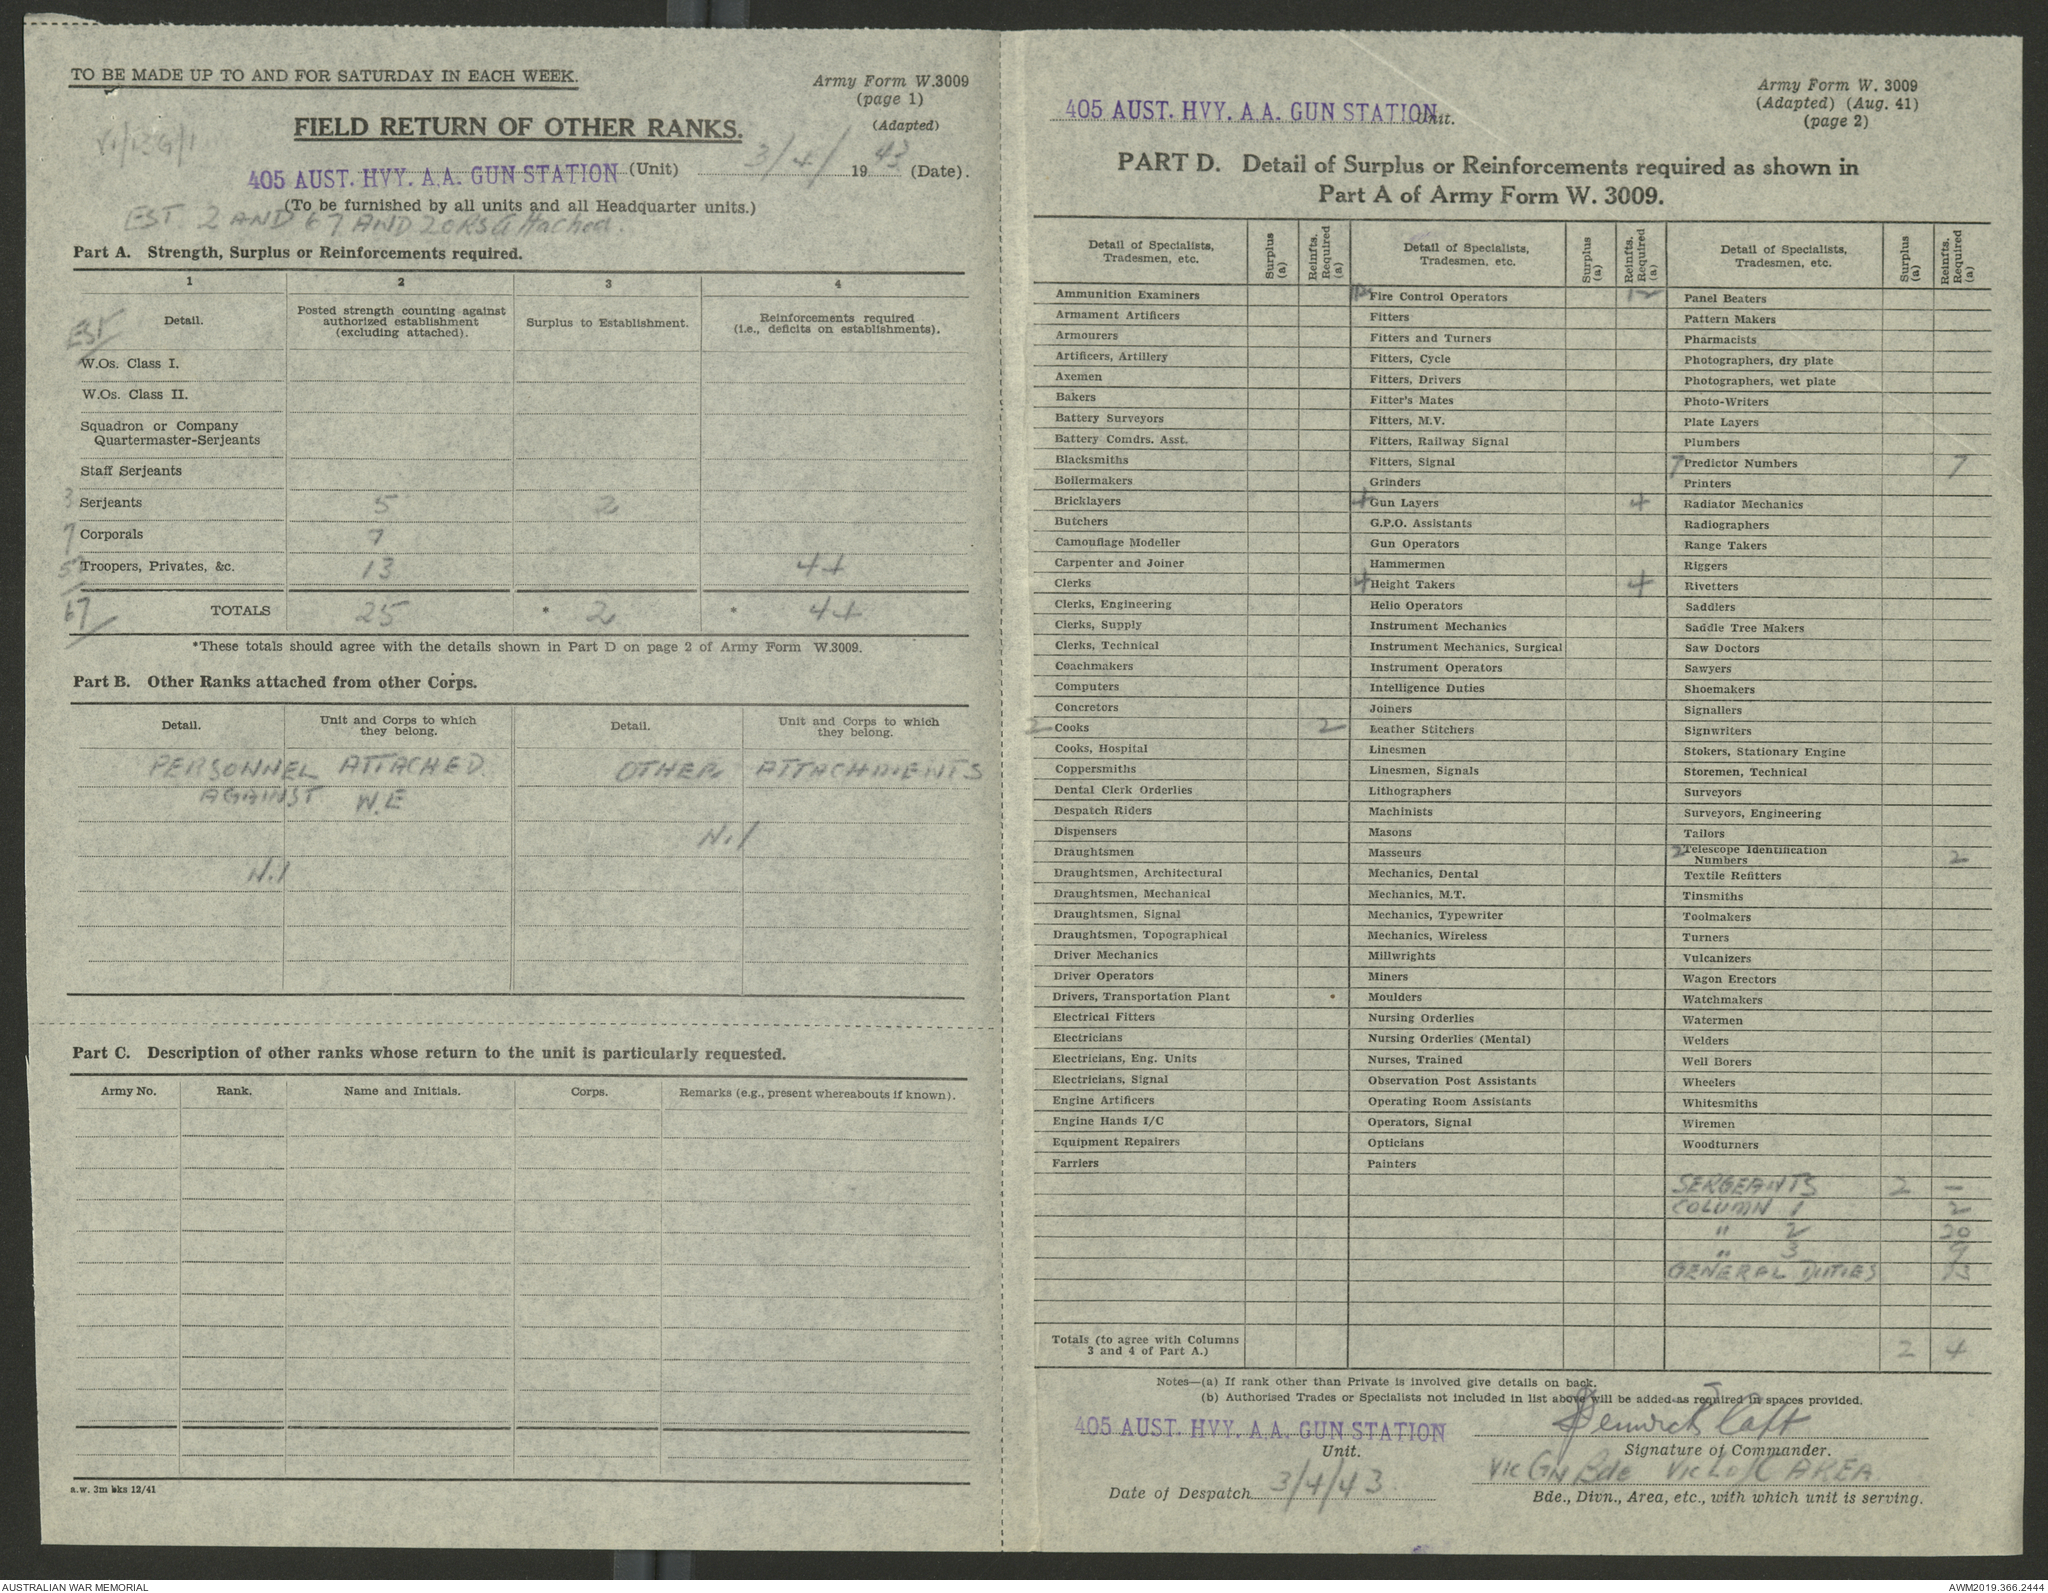 TO BE MADE UP TO AND FOR SATURDAY IN EACH WEEK.
Army Form W.3009
(page 1)
(Adapted)
FIELD RETURN OF OTHER RANKS.
405 AUST. HVY. A.A. GUN STATION (Unit) 3/4/ 1943 (Date).
(To be furnished by all units and all Headquarter units.)
EST. 2 AND 67 AND 2 ORS Attached.
Part A. Strength, Surplus or Reinforcements required.
1 2 3 4
EST
Detail. Posted strength counting against authorized establishment (excluding attached). Surplus to Establishment. Reinforcements required (i.e., deficits on establishments).
W.Os. Class I.
W.Os. Class II.
Squadron or Company
Quartermaster-Serjeants
Staff Serjeants
3 Serjeants 5 2
7 Corporals 7
Troopers, Privates, &c. 13 44
67 TOTALS 25 * 2 * 44
*These totals should agree with the details shown in Part D on page 2 of Army Form W.3009.
Part B. Other Ranks attached from other Corps.
Detail. Unit and Corps to which they belong. Detail. Unit and Corps to which they belong.
PERSONNEL ATTACHED OTHER ATTACHMENTS
AGAINST W.E
Nil
Nil
Part C. Description of other ranks whose return to the unit is particularly requested.
Army No. Rank. Name and Initials. Corps. Remarks (e.g., present whereabouts if known).
a.w. 3m bks 12/41
Army Form W. 3009
(Adapted) (Aug. 41)
(page 2)
405 AUST. HVY. A.A. GUN STATION Unit.
PART D. Detail of Surplus or Reinforcements required as shown in
Part A of Army Form W. 3009.
Detail of Specialists, Tradesmen, etc. Surplus (a) Reinfts. Required (a) Detail of Specialists, Tradesmen, etc. Surplus (a) Reinfts. Required (a) Detail of Specialists, Tradesmen, etc. Surplus (a) Reinfts. Required (a)
Ammunition Examiners Fire Control Operators 12 Panel Beaters
Armament Artificers Fitters Pattern Makers
Armourers Fitters and Turners Pharmacists
Artificers, Artillery Fitters, Cycle Photographers, dry plate
Axemen Fitters, Drivers Photographers, wet plate
Bakers Fitter's Mates Photo-Writers
Battery Surveyors Fitters, M.V. Plate Layers
Battery Comdrs. Asst. Fitters, Railway Signal Plumbers
Blacksmiths Fitters, Signal 7 Predictor Numbers 7
Boilermakers Grinders Printers
Bricklayers 4 Gun Layers 4 Radiator Mechanics
Butchers G.P.O. Assistants Radiographers
Camouflage Modeller Gun Operators Range Takers
Carpenter and Joiner Hammermen Riggers
Clerks 4 Height Takers 4 Rivetters
Clerks, Engineering Helio Operators Saddlers
Clerks, Supply Instrument Mechanics Saddle Tree Makers
Clerks, Technical Instrument Mechanics, Surgical Saw Doctors
Coachmakers Instrument Operators Sawyers
Computers Intelligence Duties Shoemakers
Concretors Joiners Signallers
2 Cooks 2 Leather Stitchers Signwriters
Cooks, Hospital Linesmen Stokers, Stationary Engine
Coppersmiths Linesmen, Signals Storemen, Technical
Dental Clerk Orderlies Lithographers Surveyors
Despatch Riders Machinists Surveyors, Engineering
Dispensers Masons Tailors
Draughtsmen Masseurs 2 Telescope Identification Numbers 2
Draughtsmen, Architectural Mechanics, Dental Textile Refitters
Draughtsmen, Mechanical Mechanics, M.T. Tinsmiths
Draughtsmen, Signal Mechanics, Typewriter Toolmakers
Draughtsmen, Topographical Mechanics, Wireless Turners
Driver Mechanics Millwrights Vulcanizers
Driver Operators Miners Wagon Erectors
Drivers, Transportation Plant Moulders Watchmakers
Electrical Fitters Nursing Orderlies Watermen
Electricians Nursing Orderlies (Mental) Welders
Electricians, Eng. Units Nurses, Trained Well Borers
Electricians, Signal Observation Post Assistants Wheelers
Engine Artificers Operating Room Assistants Whitesmiths
Engine Hands I/C Operators, Signal Wiremen
Equipment Repairers Opticians Woodturners
Farriers Painters
SERGEANTS 2 —
COLUMN 1 2
" 2 20
" 3 9
GENERAL DUTIES 13
Totals (to agree with Columns 3 and 4 of Part A.) 2 4
Notes—(a) If rank other than Private is involved give details on back.
(b) Authorised Trades or Specialists not included in list above will be added as required in spaces provided.
405 AUST. HVY. A.A. GUN STATION
Unit.
Signature of Commander.
Vic Gn Bde Vic L of C AREA
Date of Despatch 3/4/43.
Bde., Divn., Area, etc., with which unit is serving.
AUSTRALIAN WAR MEMORIAL
AWM2019.366.2444